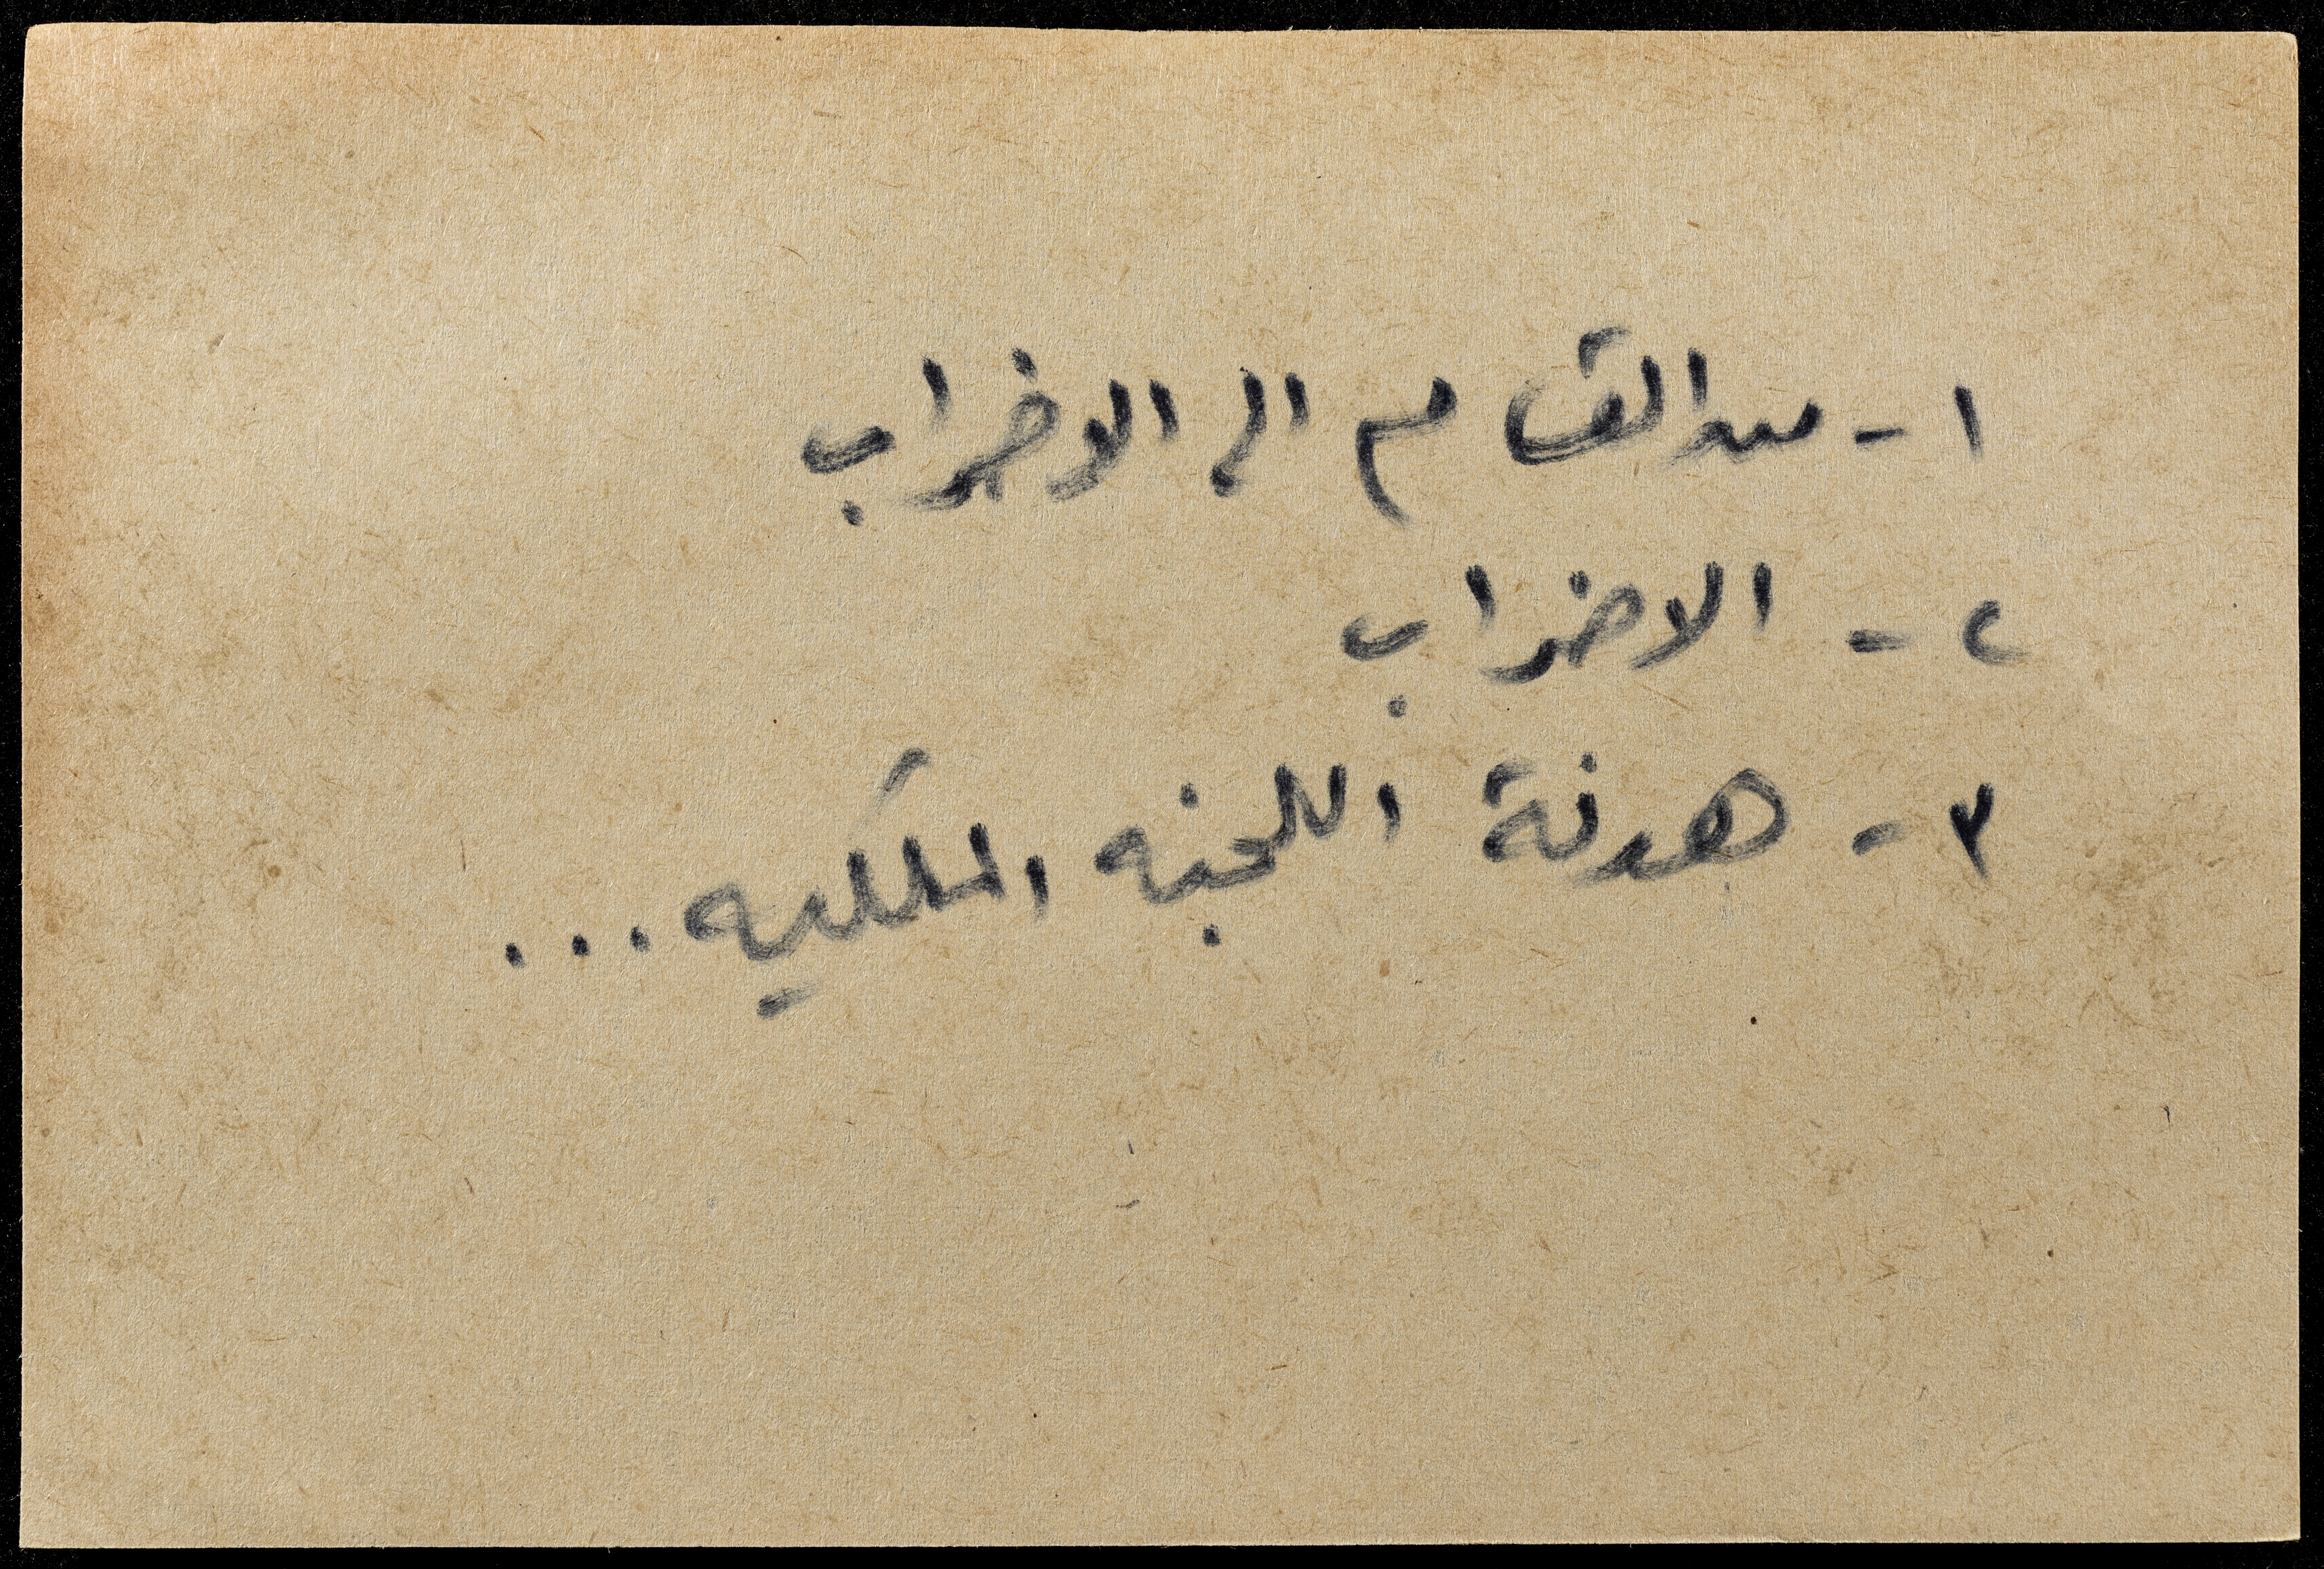 ١ - من القسام الى الاضراب
٢ - الاضراب
٣ - هدنة اللجنه الملكيه ...